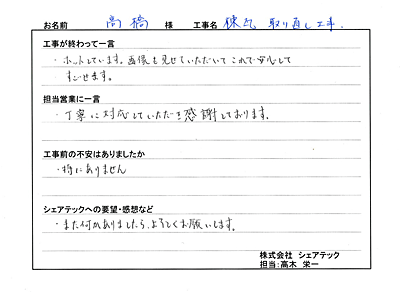 お名前 高橋 様 工事名 棟瓦 取り直し工事.
工事が終わって一言
・ホットしています。画像も見せていただいてこれで安心して
すごせます。
担当営業に一言
・丁寧に対応していただき感謝しております。
工事前の不安はありましたか
・特にありません
シェアテックへの要望・感想など
・また何かありましたら、よろしくお願いします。
株式会社 シェアテック
担当：高木 栄一